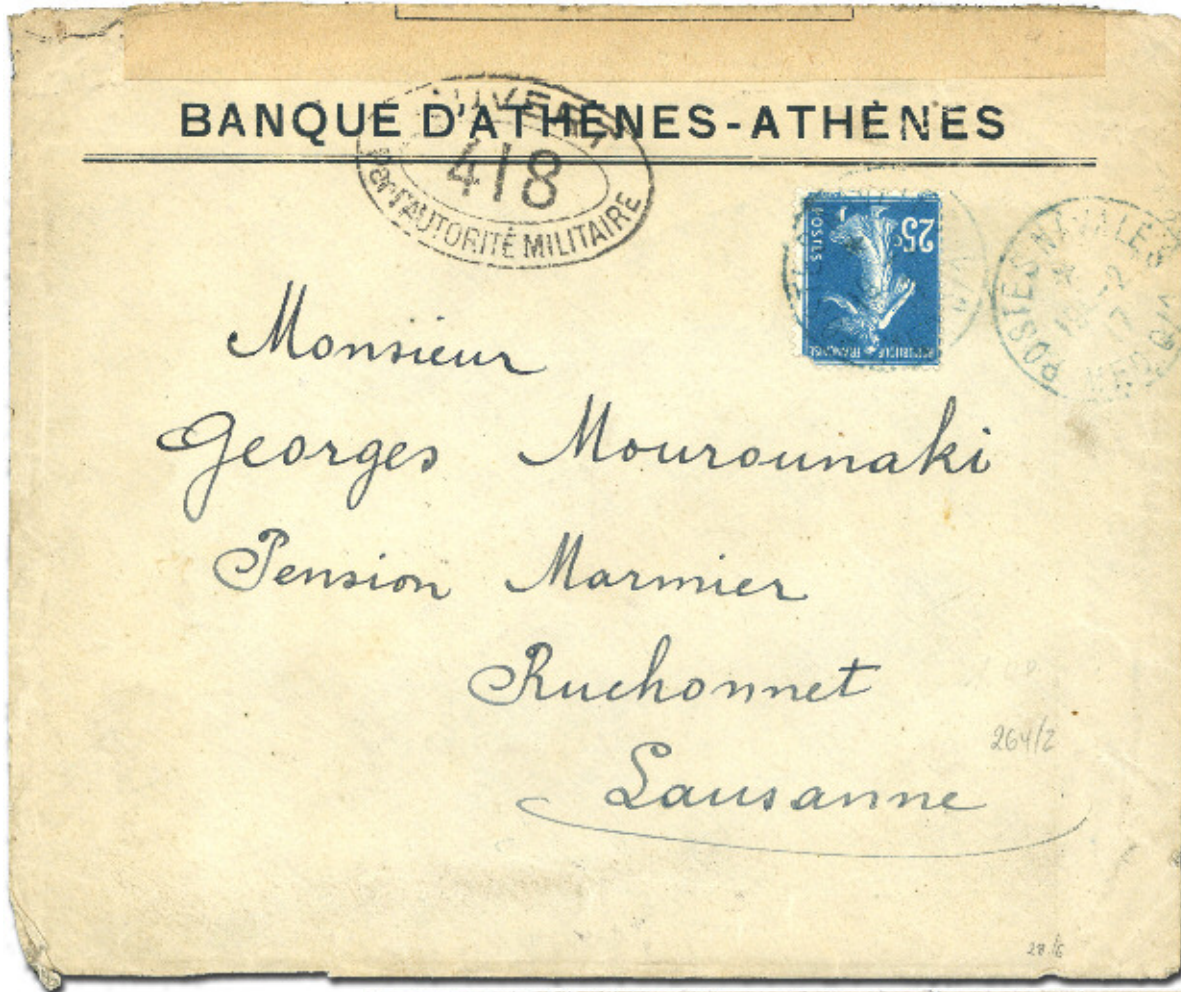 BANQUE D'ATHÈNES-ATHÈNES
418
par l'AUTORITÉ MILITAIRE
25
POSTES
REPUBLIQUE FRANÇAISE
POSTES NAVALES
Monsieur
Georges Mourounaki
Pension Marmier
Ruchonnet
Lausanne
264/2